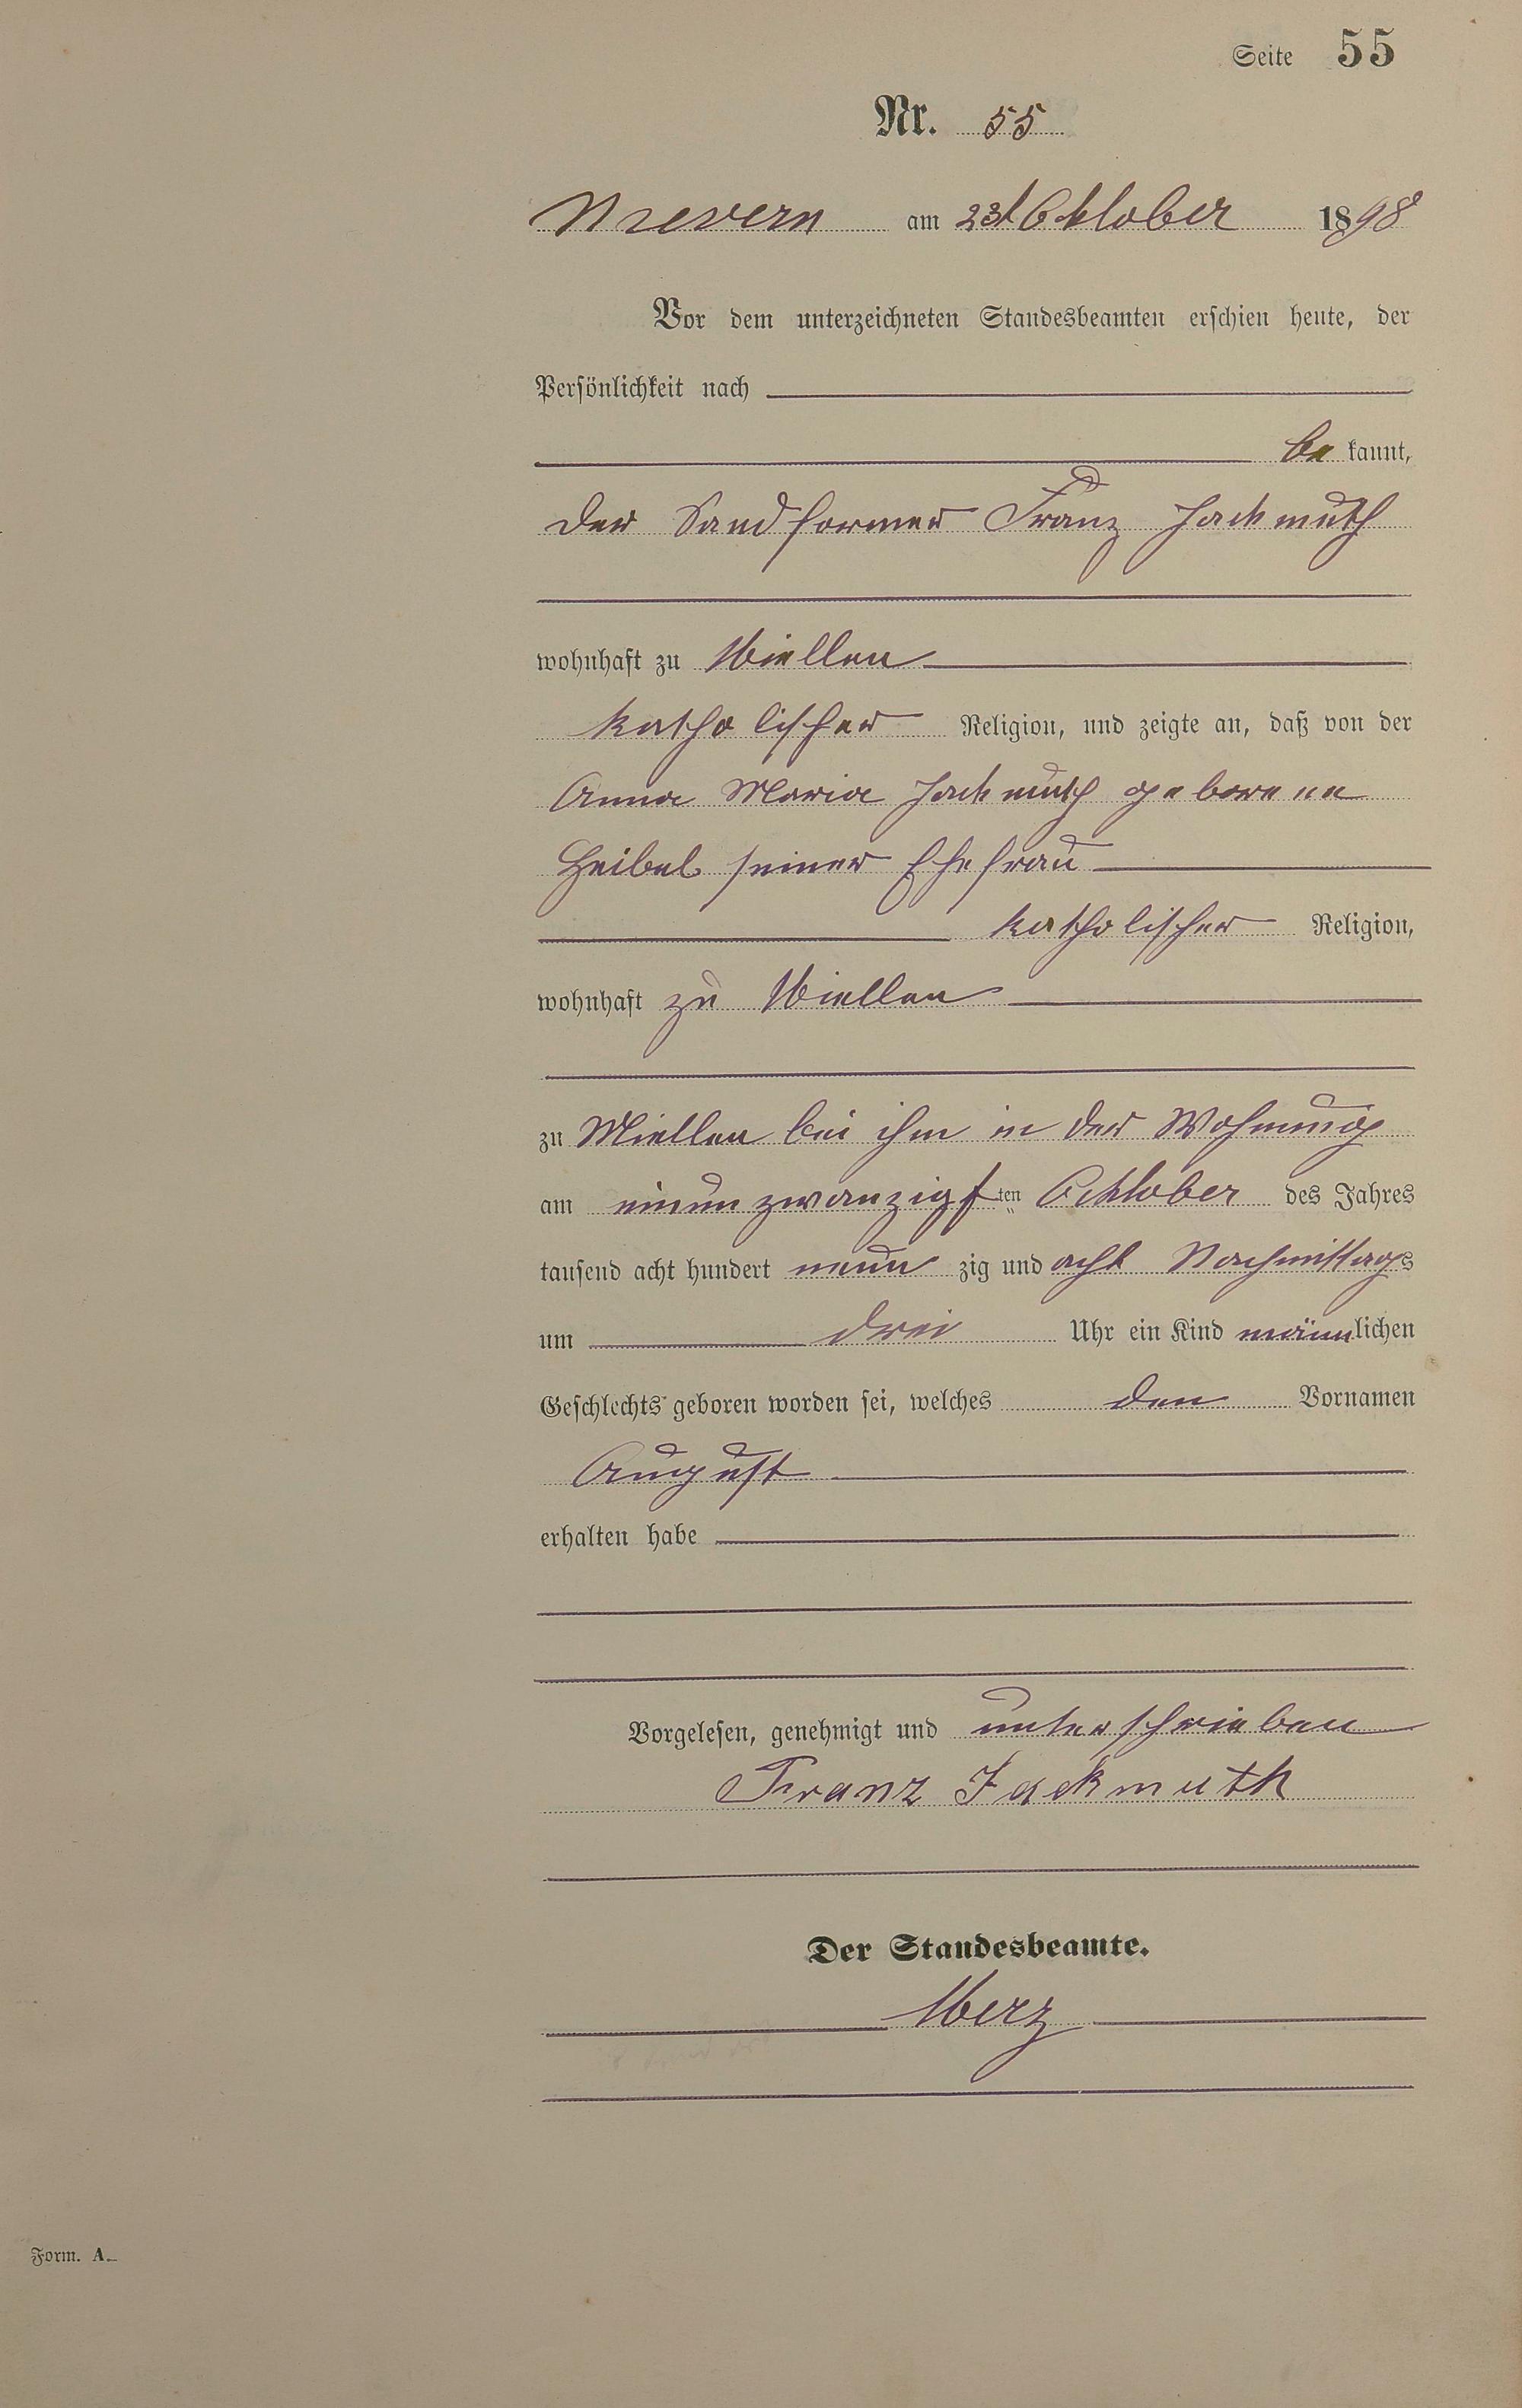 Seite 55
Nr. 55
Nievern am 23t Oktober 1898
Vor dem unterzeichneten Standesbeamten erschien heute, der
Persönlichkeit nach
be kannt,
der Sandformer Franz Jackmuth
wohnhaft zu Miellen
katholischer Religion, und zeigte an, daß von der
Anna Maria Jackmuth geborene
Heibel seiner Ehefrau
katholischer Religion,
wohnhaft zu Miellen
zu Miellen bei ihm in der Wohnung
am einunzwanzigsten Oktober des Jahres
tausend acht hundert neun zig und acht Nachmittags
um drei Uhr ein Kind männlichen
Geschlechts geboren worden sei, welches den Vornamen
August
erhalten habe
Vorgelesen, genehmigt und unterschrieben
Franz Jackmuth
Der Standesbeamte.
Merz
Form. A.